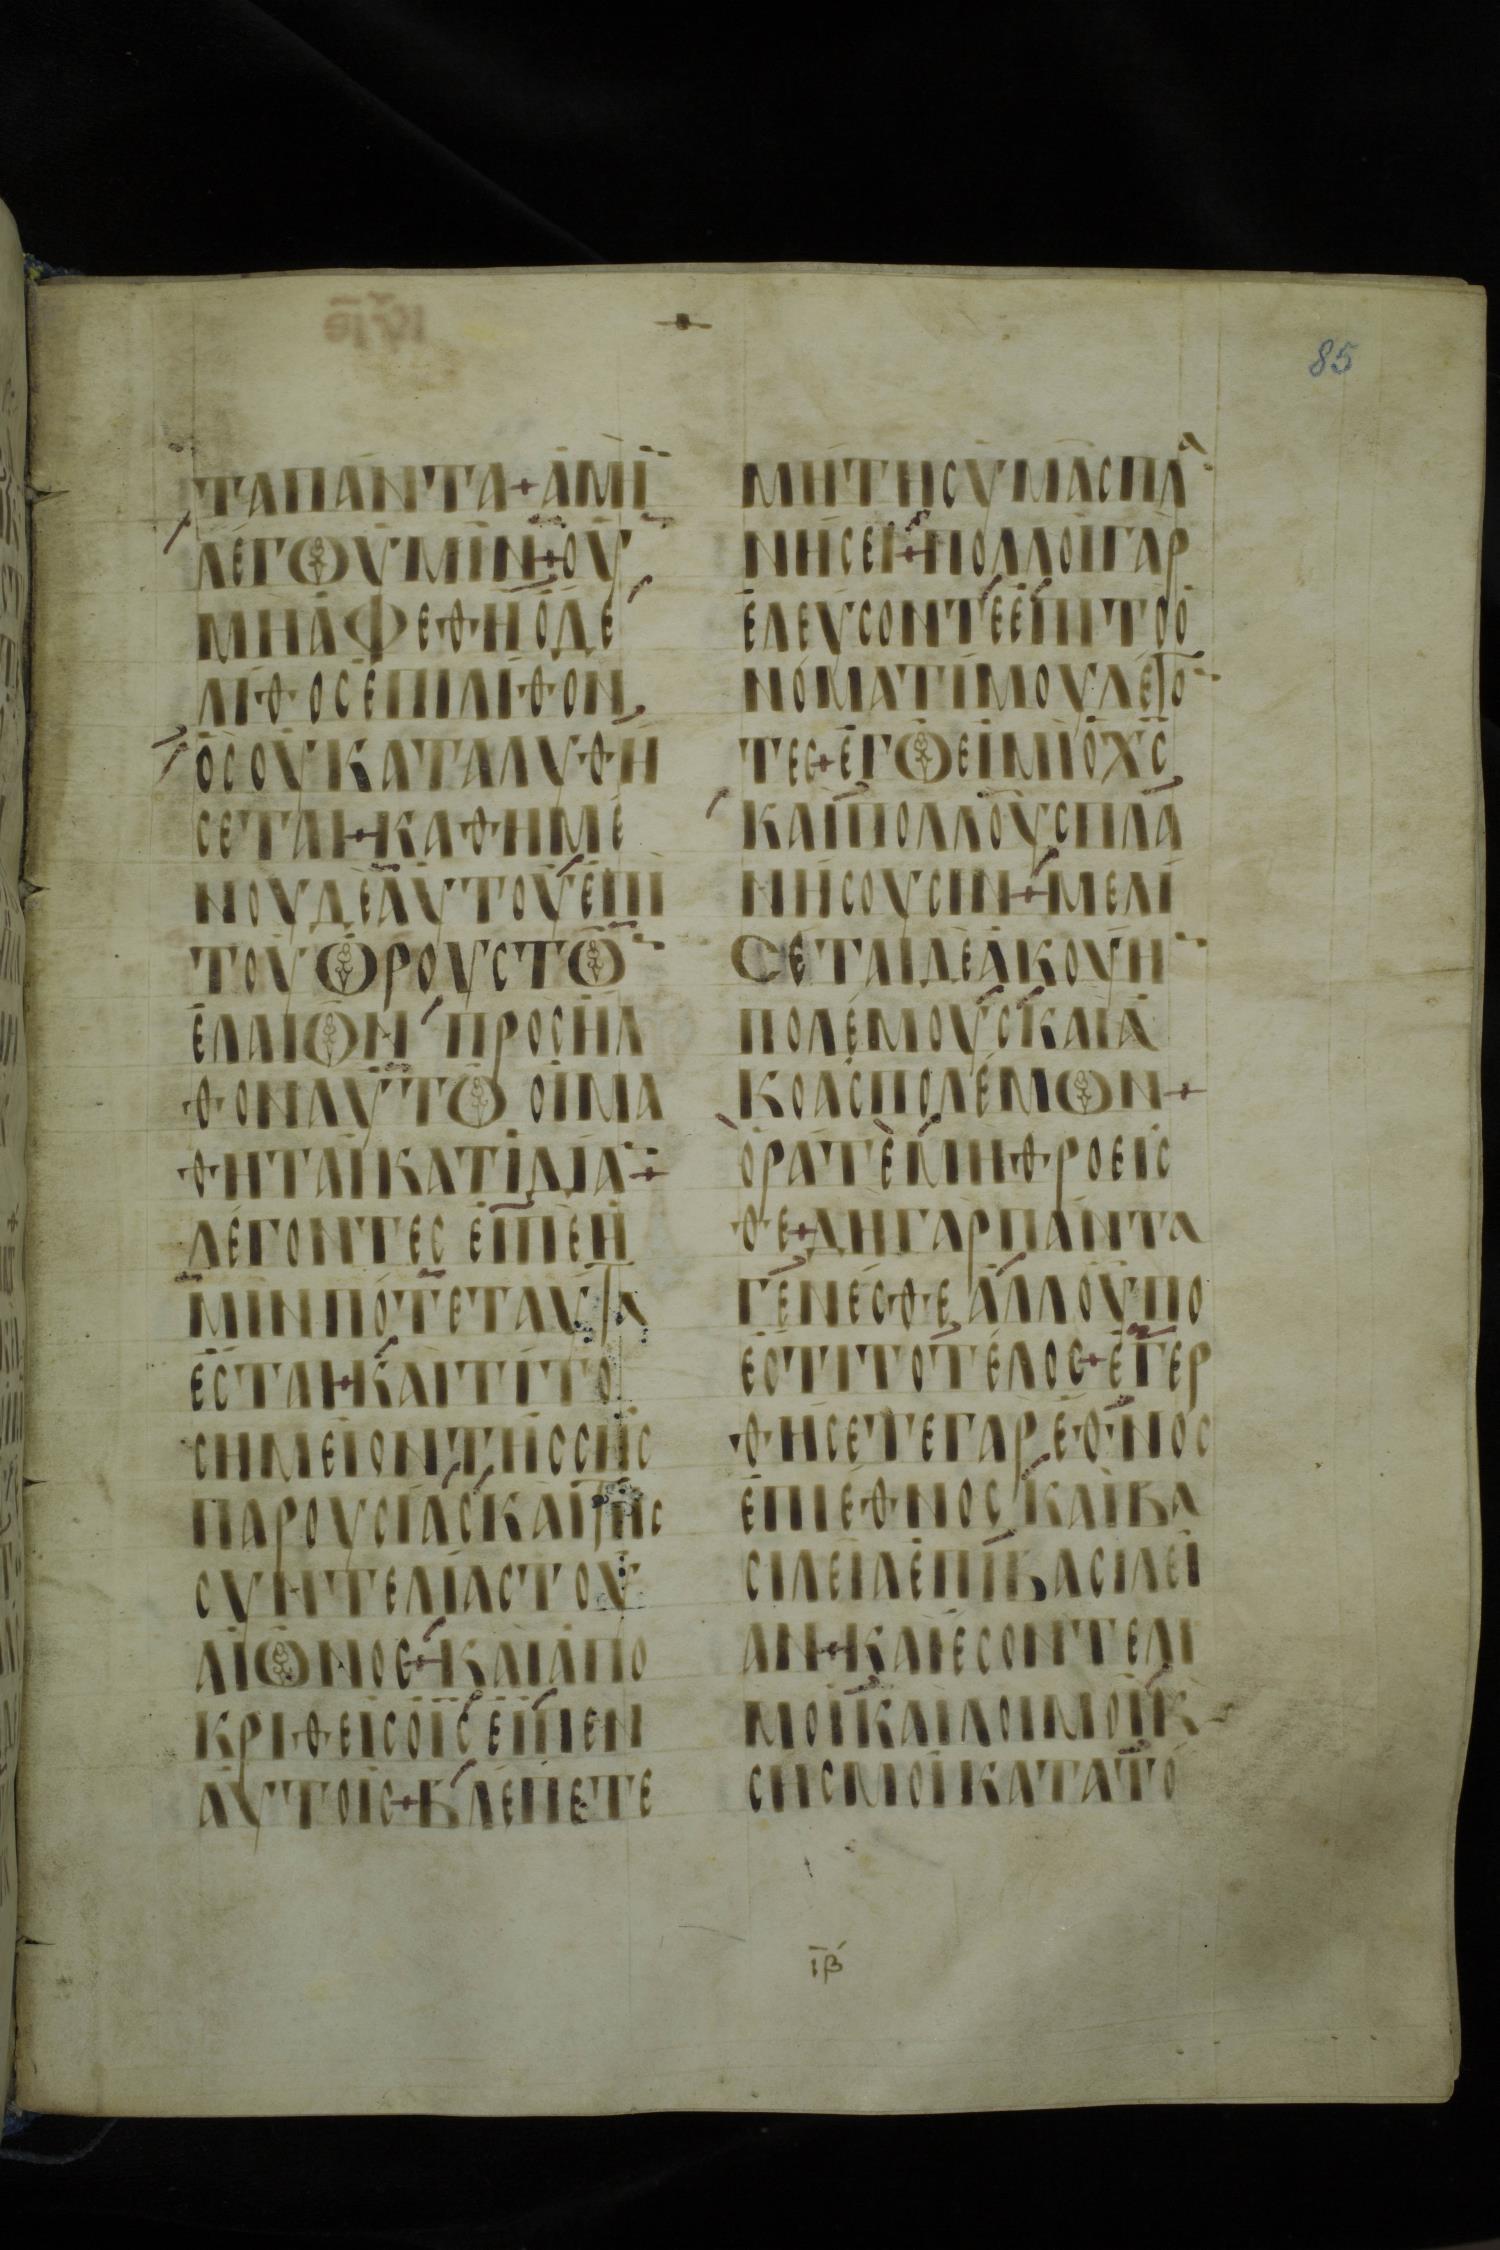 85
ΤΑΠΑΝΤΑ+ΑΜΗ
ΛΕΓΩΥΜΙΝ+ΟΥ
ΜΗΑΦΕΘΗΟΔΕ
ΛΙΘΟΣΕΠΙΛΙΘΟΝ
ΟΣΟΥΚΑΤΑΛΥΘΗ
ΣΕΤΑΙ+ΚΑΘΗΜΕ
ΝΟΥΔΕΑΥΤΟΥΕΠΙ
ΤΟΥΩΡΟΥΣΤΩ
ΕΛΑΙΩΝ ΠΡΟΣΗΛ
ΘΟΝΑΥΤΩ ΟΙΜΑ
ΘΗΤΑΙΚΑΤΙΔΙΑ+
ΛΕΓΟΝΤΕΣ ΕΙΠΕΗ
ΜΙΝΠΟΤΕΤΑΥΤΑ
ΕΣΤΑΙ+ΚΑΙΤΙΤΟ
ΣΗΜΕΙΟΝΤΗΣΣΗΣ
ΠΑΡΟΥΣΙΑΣΚΑΙΤΗΣ
ΣΥΝΤΕΛΙΑΣΤΟΥ
ΑΙΩΝΟΣ+ΚΑΙΑΠΟ
ΚΡΙΘΕΙΣΟΙΣΕΙΠΕΝ
ΑΥΤΟΙΣ+ΒΛΕΠΕΤΕ
ΜΗΤΗΣΥΜΑΣΠΛΑ
ΝΗΣΕΙ+ΠΟΛΛΟΙΓΑΡ
ΕΛΕΥΣΟΝΤΕΕΠΙΤΩΟ
ΝΟΜΑΤΙΜΟΥΛΕΓΟ
ΤΕΣ+ΕΓΩΕΙΜΙΟΧΣ
ΚΑΙΠΟΛΛΟΥΣΠΛΑ
ΝΗΣΟΥΣΙΝ+ΜΕΛΙ
ΣΕΤΑΙΔΕΑΚΟΥΗ
ΠΟΛΕΜΟΥΣΚΑΙΑ
ΚΟΑΣΠΟΛΕΜΩΝ+
ΟΡΑΤΕΜΗΘΡΟΕΙΣ
ΘΕ+ΔΗΓΑΡΠΑΝΤΑ
ΓΕΝΕΣΘΕΑΛΛΟΥΠΟ
ΕΣΤΙΤΟΤΕΛΟΣ+ΕΓΕΡ
ΘΗΣΕΤΕΓΑΡΕΘΝΟΣ
ΕΠΙΕΘΝΟΣΚΑΙΒΑ
ΣΙΛΕΙΑΕΠΙΒΑΣΙΛΕΙ
ΑΝ+ΚΑΙΕΣΟΝΤΕΛΙ
ΜΟΙΚΑΙΛΟΙΜΟΙΚ
ΣΗΣΜΟΙΚΑΤΑΤΟ
ιβ